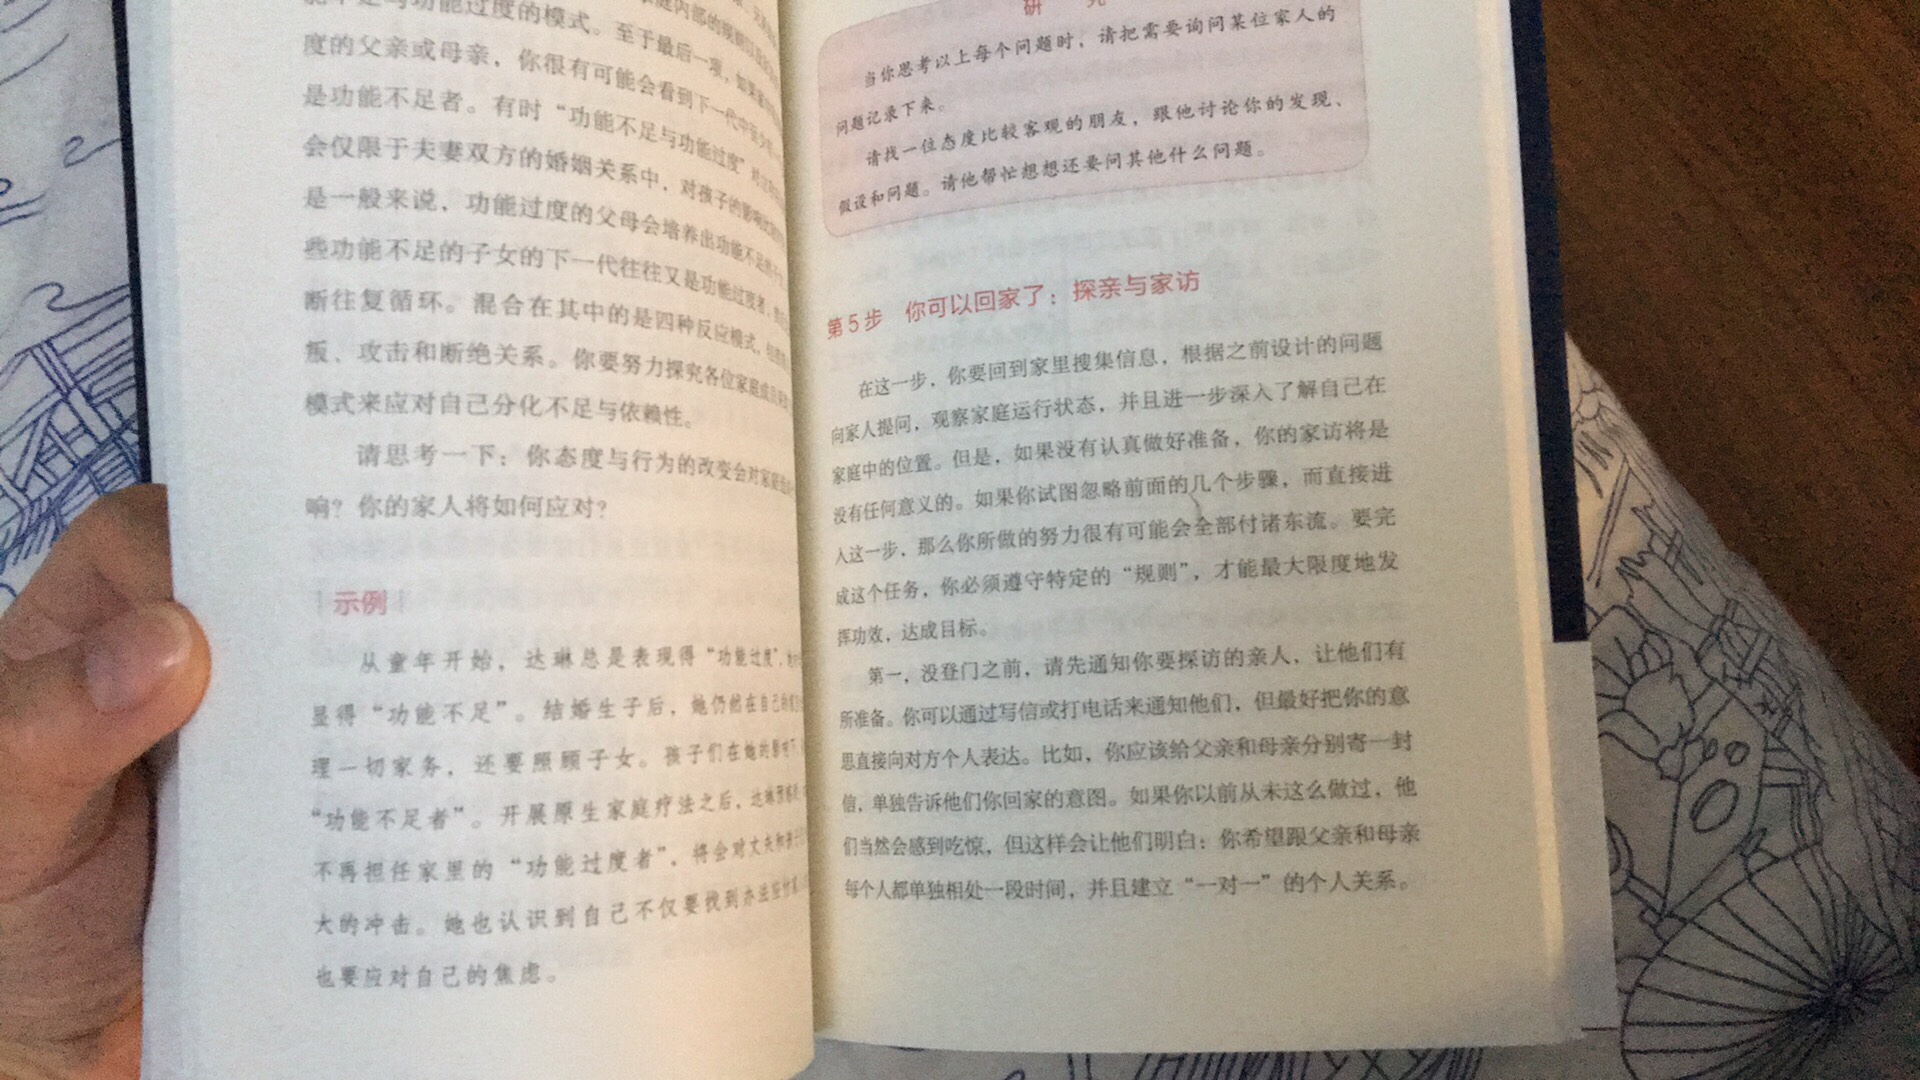 能不足与功能过度的模式。至于最后一项,如果
度的父亲或母亲,你很有可能会看到下一代中
是功能不足者。有时“功能不足与功能过度”
会仅限于夫妻双方的婚姻关系中,对孩子的影响
是一般来说,功能过度的父母会培养出功能不足
些功能不足的子女的下一代往往又是功能过度者,
断往复循环。混合在其中的是四种反应模式,
叛、攻击和断绝关系。你要努力探究各位家庭成员
模式来应对自己分化不足与依赖性。
请思考一下:你态度与行为的改变会对家庭
响?你的家人将如何应对?
示例
从童年开始,达琳总是表现得“功能过度”,
显得“功能不足”。结婚生子后,她仍然在自己的
理一切家务,还要照顾子女。孩子们在她的影响下
“功能不足者”。开展原生家庭疗法之后,达琳
不再担任家里的“功能过度者”,将会对丈夫和
大的冲击。她也认识到自己不仅要找到办法应付
也要应对自己的焦虑。
研 究
当你思考以上每个问题时,请把需要询问某位家人的
问题记录下来。
请找一位态度比较客观的朋友,跟他讨论你的发现、
假设和问题。请他帮忙想想还要问其他什么问题。
第5步 你可以回家了:探亲与家访
在这一步,你要回到家里搜集信息,根据之前设计的问题
向家人提问,观察家庭运行状态,并且进一步深入了解自己在
家庭中的位置。但是,如果没有认真做好准备,你的家访将是
没有任何意义的。如果你试图忽略前面的几个步骤,而直接进
入这一步,那么你所做的努力很有可能会全部付诸东流。要完
成这个任务,你必须遵守特定的“规则”,才能最大限度地发
挥功效,达成目标。
第一,没登门之前,请先通知你要探访的亲人,让他们有
所准备。你可以通过写信或打电话来通知他们,但最好把你的意
思直接向对方个人表达。比如,你应该给父亲和母亲分别寄一封
信,单独告诉他们你回家的意图。如果你以前从未这么做过,他
们当然会感到吃惊,但这样会让他们明白:你希望跟父亲和母亲
每个人都单独相处一段时间,并且建立“一对一”的个人关系。